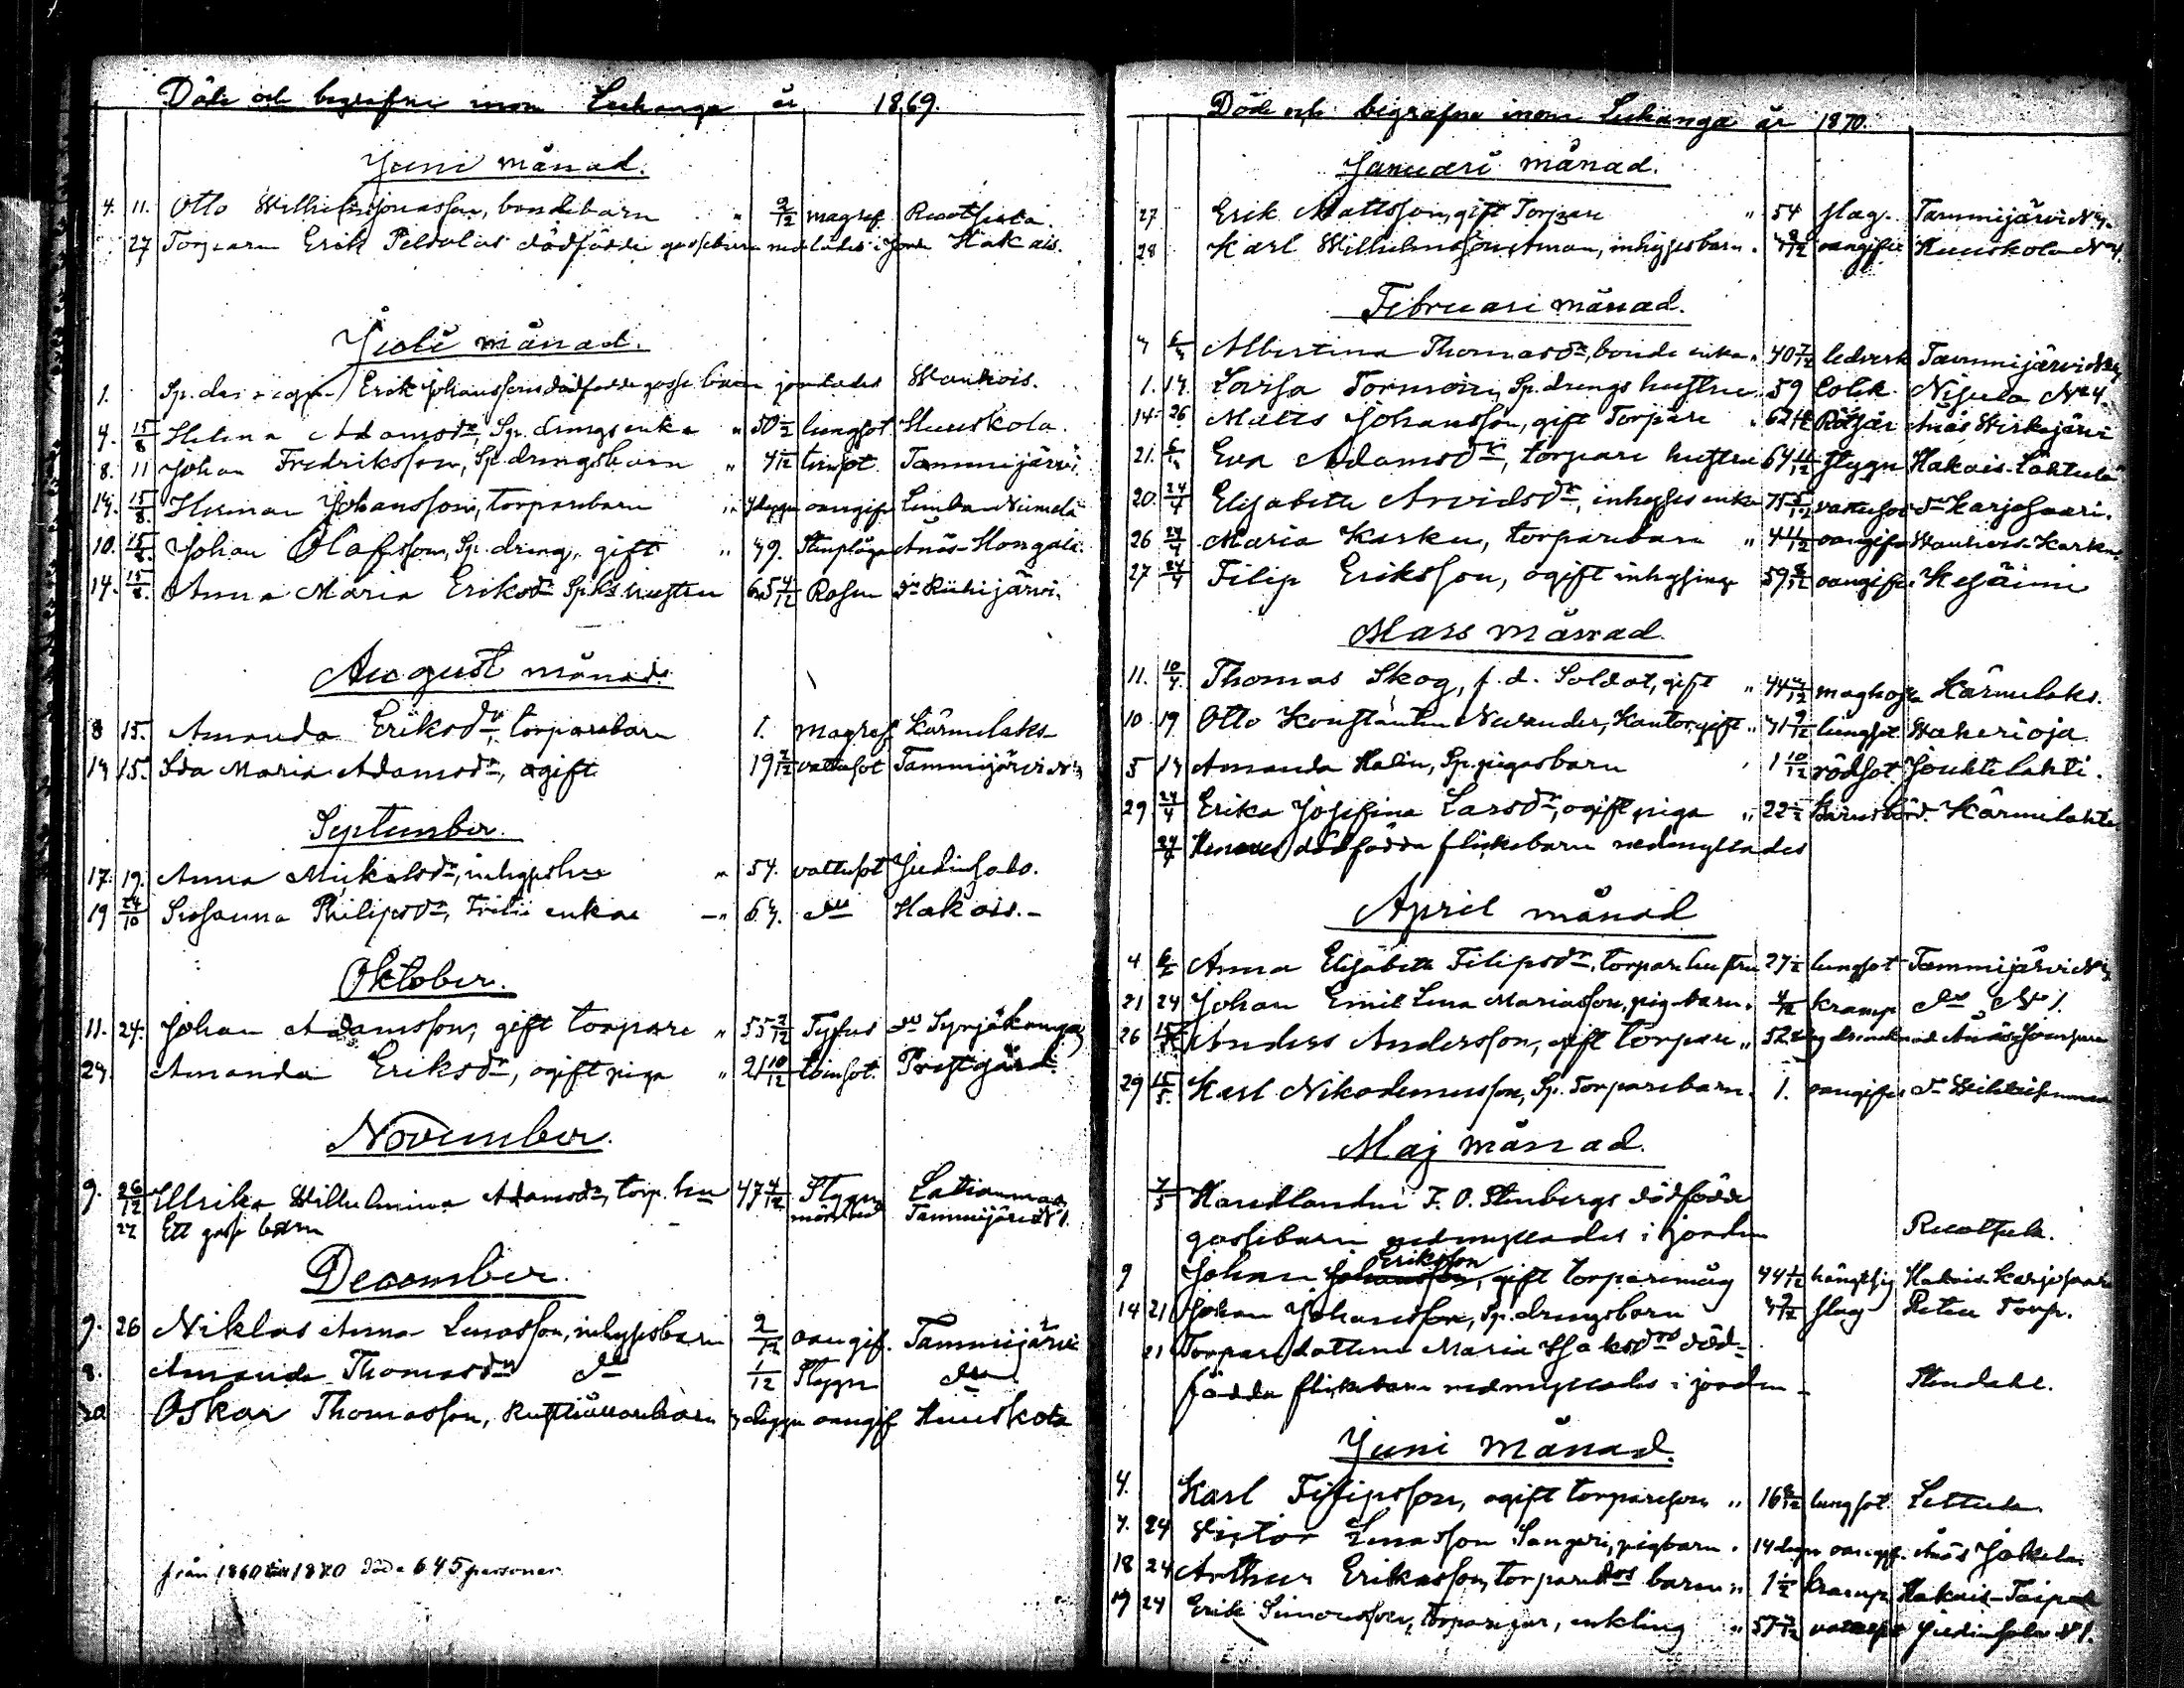 Döde och begrafne inom Luhanga år 1869.
Juni månad.
4. 11. Otto Wilhelm Jonasson, bondebarn " 9/12 magref Ruotsula
27 Torparen Erik Peldolas dödfödde gossebarn nedlades i jord Hakais.
Juli månad.
1. Sp. dr. Erik Johanssons dödfödde gossebarn jordades Wanhois.
4. 15/8 Helena Adamsdr Sp. drengs enka " 50 1/2 lungsot Huuskola.
8. 11 Johan Fredriksson, Sp. drengsbarn " 4/12 tvinsot. Tammijärvi
14. 15/8. Herman Johansson, torparebarn " dygn oangif. Niemelä
10. 15/8 Johan Olafsson, Sp. dreng, gift " 49. Stenplåga Anäs-Hongala.
14. 15/8. Anna Maria Eriksdr Sp. ks. hustru 65 4/12 Rosen dr Riihijärvi.
August månad.
8 15. Amanda Eriksdr, torparebarn 1. magref. Kärmelaks
14 15. Ida Maria Adamsdr, ogift 19 7/12 vattusot Tammijärvi N3
September.
17. 19. Anna Mickelsdr, inhyseshu " 54. vattusot Judinsalo.
19 24/10 Susanna Philipsdr, enka —" 64. do Hakois. -
Oktober.
11. 24. Johan Adamsson, gift torpare " 55 2/12 Tyfus do Syrjäkangas
29. Amanda Eriksdr, ogift piga " 21 10/12 tvinsot. Prestgård.
November.
9. 26/12 Ullrika Wilhelmina Adamsdr, torp. hu 47 4/12 Stygn
27 Ett gosse barn Tammijärvi N1.
December.
9. 26 Niklas Anna Lenasson, inhysesbarn 2/12 oangif. Tammijärvi
8. Amanda Thomasdr do 1/12 Stygn do
20 Oskar Thomasson, barn dygn oangif Huuskola
från 1860 till 1870 döde 645 personer
Döde och begrafne inom Luhanga år 1870.
Januari månad.
27 Erik Mattsson, gift Torpare " 54 slag. Tammijärvi N4.
28 Karl Wilhelmsson Åman, inhysesbarn. oangifve Huuskola N4.
Februari månad.
4 Albertina Thomasdr, bonde enka " 40 7/12 ledverk Tammijärvi
1. 14. Lovisa Tormoin, Sp. drengs hustru, 59 Colik. Nisula No 4.
14. 26 Matts Johansson, gift Torpare " 62 Anäs Wirkajärvi
21. Eva Adamsdr, torpare hustru 64 11/12 stygn Hakais-Läktelä
20. 24/4 Elisabeth Arvidsdr, inhyses enka 75 5/12 vattusot do Karjosaari.
26 24/4 Maria Karku, torparebarn " 4 11/12 oangifve Wanhois-Karku.
27 24/4 Filip Eriksson, ogift inhysing 59 oangifve. Kesäimi
Mars månad.
11. 10/4. Thomas Skog, f. d. Soldat, gift " 44 Kärmelaks.
10 19 Otto Konstantin Nurander, Kantor, gift " 41 9/12 lungsot Waherioja
5 14 Amanda Halin, Sp. pigasbarn 1 10/12 rödsot Jouhtilahti.
29 24/4 Erika Josefina Larsdr, ogift piga " 22 1/2 Barnsbörd. Kärmelahti
24/4 Hennes dödfödda flickebarn nedmyllades
April månad
4 Anna Elisabeth Filipsdr, torpare hustru 27 1/2 lungsot Tammijärvi N3
21 24 Johan Emil Lena Mariasson, pig-barn. 4/12 kramp do N1.
26 15/5 Anders Andersson, gift torpare " 52
29 15/5. Karl Nikodemusson, Sp. Torparebarn. 1. oangifve
Maj månad.
7/5 Handlanden F. O. Stenbergs dödfödde
gossebarn nedmyllades i jorden Ruotsula.
9 Johan Johansson Eriksson, gift torparemåg 44 1/12 Hakois Karjosaari
14 21 Johan Johansson, Sp. drengsbarn slag Torp.
21 Torparedottern Maria Isaksdrs död-
födda flickebarn nedmyllades i jorden Stendahl.
Juni månad.
4. Karl Filipsson, ogift torpareson " 16 8/12 lungsot. Lettula.
7. 24 Victor Lenasson Sangeri, pigbarn. 14 dygn oangif. Anäs Jokela
18 24 Arthur Eriksson, torparedos barn " 1 1/2 kramp Hakais-Taipale
19 24 Erik Simonsson, torparegu, enkling " 57 7/12 vattusot Judinsalo N1.